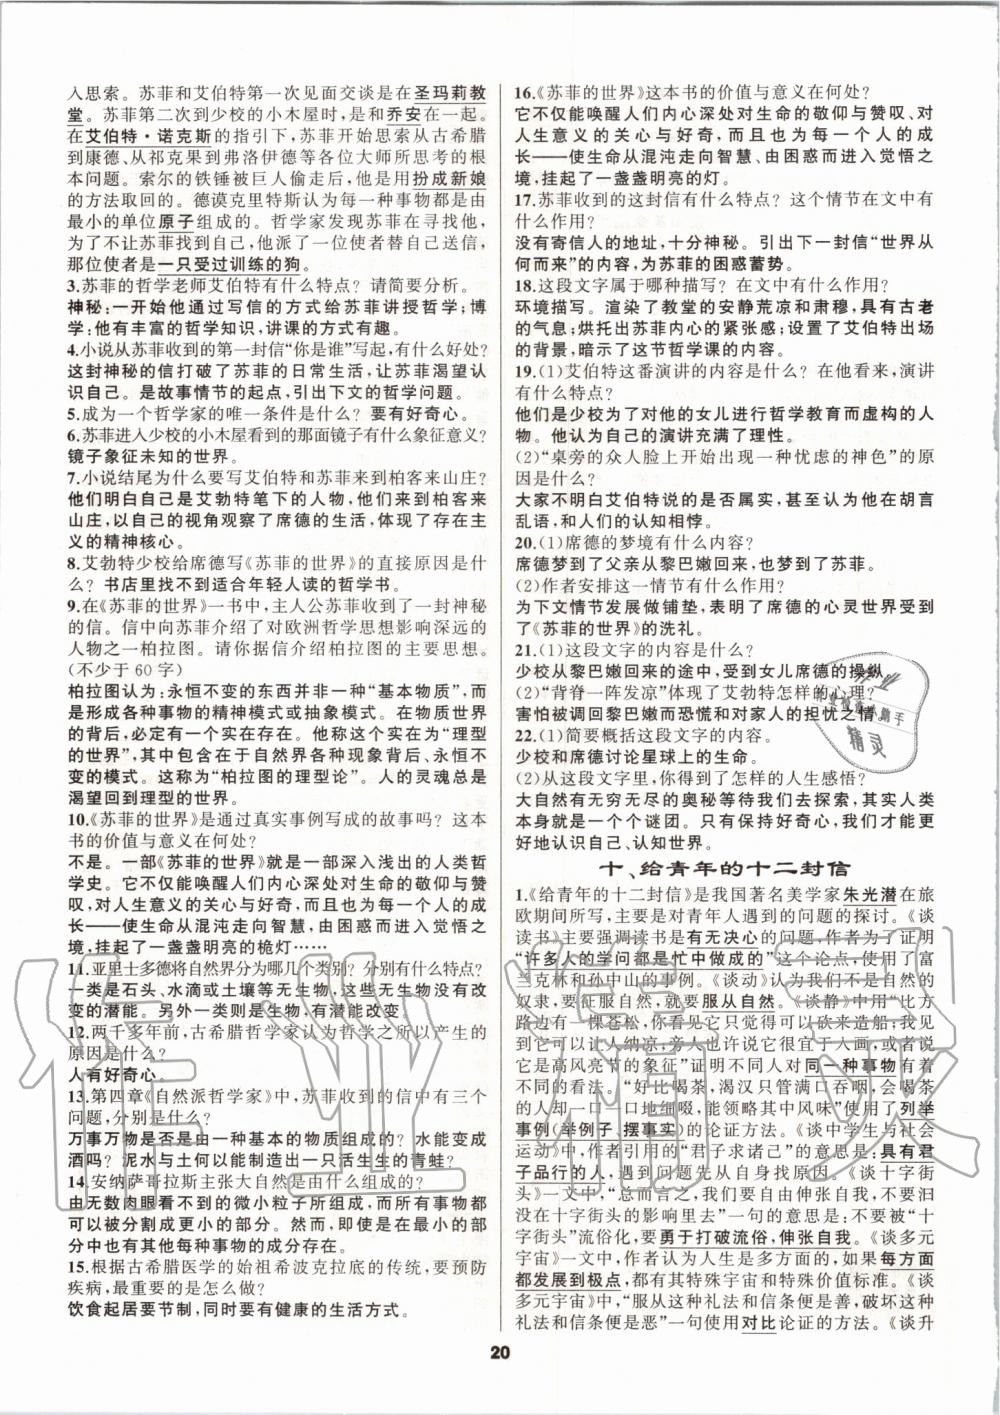 人思索。苏菲和艾伯特第一次见面交谈是在圣玛莉教
堂。苏菲第二次到少校的小木屋时,是和乔安在一起。
在艾伯特·诺克斯的指引下,苏菲开始思索从古希腊
到康德、从祁克果到弗洛伊德等各位大师所思考的根
本问题。索尔的铁锤被巨人偷走后,他是用扮成新娘
的方法取回的。德谟克里特斯认为每一种事物都是由
最小的单位原子组成的。哲学家发现苏菲在寻找他,
为了不让苏菲找到自己,他派了一位使者替自己送信,
那位使者是一只受过训练的狗。
3.苏菲的哲学老师艾伯特有什么特点?请简要分析。
神秘:一开始他通过写信的方式给苏菲讲授哲学;博
学:他有丰富的哲学知识,讲课的方式有趣。
4.小说从苏菲收到的第一封信“你是谁”写起,有什么好处?
这封神秘的信打破了苏菲的日常生活,让苏菲渴望认
识自己。是故事情节的起点,引出下文的哲学问题。
5.成为一个哲学家的唯一条件是什么?要有好奇心。
6.苏菲进入少校的小木屋看到的那面镜子有什么象征意义?
镜子象征未知的世界。
7.小说结尾为什么要写艾伯特和苏菲来到柏客来山庄?
他们明白自己是艾勃特笔下的人物,他们来到柏客来
山庄,以自己的视角观察了席德的生活,体现了存在主
义的精神核心。
8.艾勃特少校给席德写《苏菲的世界》的直接原因是什
么?书店里找不到适合年轻人读的哲学书。
9.在《苏菲的世界》一书中,主人公苏菲收到了一封神秘
的信。信中向苏菲介绍了对欧洲哲学思想影响深远的
人物之一柏拉图。请你据信介绍柏拉图的主要思想。
(不少于60字)
柏拉图认为:永恒不变的东西并非一种“基本物质”,而
是形成各种事物的精神模式或抽象模式。在物质世界
的背后,必定有一个实在存在。他称这个实在为“理型
的世界”,其中包含在于自然界各种现象背后、永恒不
变的模式。这称为“柏拉图的理型论”。人的灵魂总是
渴望回到理型的世界。
10.《苏菲的世界》是通过真实事例写成的故事吗?这本
书的价值与意义在何处?
不是。一部《苏菲的世界》就是深入浅出的人类哲
学史。它不仅能唤醒人们内心深处对生命的敬仰与赞
叹,对人生意义的关心与好奇,而且也为每一个人的成
长——使生命从混沌走向智慧、由困惑而进入觉悟之
境,挂起了一盏盏明亮的桅灯……
11.亚里士多德将自然界分为哪几个类别?分别有什么特点?
一类是石头、水滴或土壤等无生物,这些无生物没有改
变的潜能。另外一类则是生物,有潜能改变。
12.两千多年前,古希腊哲学家认为哲学之所以产生的
原因是什么?
人有好奇心。
13.第四章《自然派哲学家》中,苏菲收到的信中有三个
问题,分别是什么?
万事万物是否是由一种基本的物质组成的?水能变成
酒吗?泥水与土何以能制造出一只活生生的青蛙?
14.安纳萨哥拉斯主张大自然是由什么组成的?
由无数肉眼看不到的微小粒子所组成,而所有事物都
可以被分割成更小的部分。然而,即使是在最小的部
分中也有其他每种事物的成分存在。
15.根据古希腊医学的始祖希波克拉底的传统,要预防
疾病,最重要的是怎么做?
饮食起居要节制,同时要有健康的生活方式。
16.《苏菲的世界》这本书的价值与意义在何处?
它不仅能唤醒人们内心深处对生命的敬仰与赞叹、对
人生意义的关心与好奇,而且也为每一个人的成
长——使生命从混沌走向智慧、由困惑而进入觉悟之
境,挂起了一盏盏明亮的灯。
17.苏菲收到的这封信有什么特点?这个情节在文中有
什么作用?
没有寄信人的地址,十分神秘。引出下一封信“世界从
何而来”的内容,为苏菲的困惑蓄势。
18.这段文字属于哪种描写?在文中有什么作用?
环境描写。渲染了教堂的安静荒凉和肃穆,具有古老
的气息;烘托出苏菲内心的紧张感;设置了艾伯特出场
的背景,暗示了这节哲学课的内容。
19.(1)艾伯特这番演讲的内容是什么?在他看来,演讲
有什么特点?
他们是少校为了对他的女儿进行哲学教育而虚构的人
物。他认为自己的演讲充满了理性。
(2)“桌旁的众人脸上开始出现一种忧虑的神色”的原
因是什么?
大家不明白艾伯特说的是否属实,甚至认为他在胡言
乱语,和人们的认知相悖。
20.(1)席德的梦境有什么内容?
席德梦到了父亲从黎巴嫩回来,也梦到了苏菲。
(2)作者安排这一情节有什么作用?
为下文情节发展做铺垫,表明了席德的心灵世界受到
了《苏菲的世界》的洗礼。
21.(1)这段文字的内容是什么?
少校从黎巴嫩回来的途中,受到女儿席德的操纵
(2)“背脊一阵发凉”体现了艾勃特怎样的心理?
害怕被调回黎巴嫩而恐慌和对家人的担忧之情
22.(1)简要概括这段文字的内容。
少校和席德讨论星球上的生命。
(2)从这段文字里,你得到了怎样的人生感悟?
大自然有无穷无尽的奥秘等待我们去探索,其实人类
本身就是一个个谜团。只有保持好奇心,我们才能更
好地认识自己、认知世界。
十、给青年的十二封信
1.《给青年的十二封信》是我国著名美学家朱光潜在旅
欧期间所写,主要是对青年人遇到的问题的探讨。《谈
读书》主要强调读书是有无决心的问题,作者为了证明
“许多人的学问都是忙中做成的”这一论点,使用了富
兰克林和孙中山的事例。《谈动》认为我们不是自然的
奴隶,要征服自然,就要服从自然。《谈静》中用“比方
路边上有一棵苍松,你看见它只觉得可以砍来造船;我见
到它可以让人纳凉;旁人也许说它很宜于入画,或者说
它是高风亮节的象征”证明不同人对同一种事物有着
不同的看法。“好比喝茶,渴汉只管满口吞咽,会喝茶
的人却一口一口地细啜,能领略其中风味”使用了列举
事例(举例子、摆事实)的论证方法。《谈中学生与社会
运动》中,作者引用的“君子求诸己”的意思是:具有君
子品行的人,遇到问题先从自身找原因。《谈十字街
头》一文中,“总而言之,我们要自由伸张自我,不要汩
没在十字街头的影响里去”一句的意思是:不要被“十
字街头”流俗化,要勇于打破流俗,伸张自我。《谈多元
宇宙》一文中,作者认为人生是多方面的,如果每方面
都发展到极点,都有其特殊宇宙和特殊价值标准。《谈
多元宇宙》中,“服从这种礼法和信条便是善,破坏这种
礼法和信条便是恶”一句使用对比论证的方法。《谈升
20
作业精灵
作业
精灵